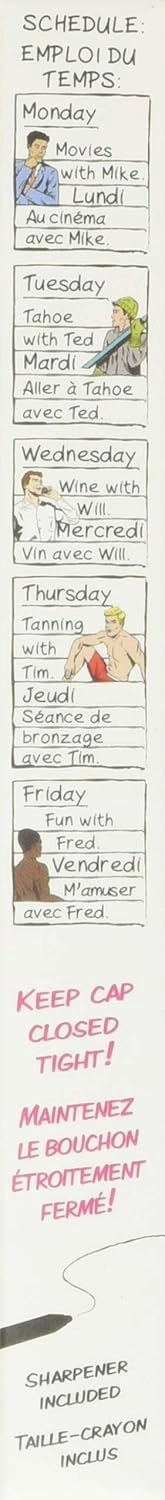 SCHEDULE:
EMPLOI DU
TEMPS:
Monday
Movies
with Mike.
Lundi
Au cinéma
avec Mike.
Tuesday
Tahoe
with Ted
Mardi
Aller à Tahoe
avec Ted.
Wednesday
Wine with
Will.
Mercredi
Vin avec Will.
Thursday
Tanning
with
Tim.
Jeudi
Séance de
bronzage
avec Tim.
Friday
Fun with
Fred.
Vendredi
M'amuser
avec Fred.
KEEP CAP
CLOSED
TIGHT!
MAINTENEZ
LE BOUCHON
ÉTROITEMENT
FERMÉ!
SHARPENER
INCLUDED
TAILLE-CRAYON
INCLUS